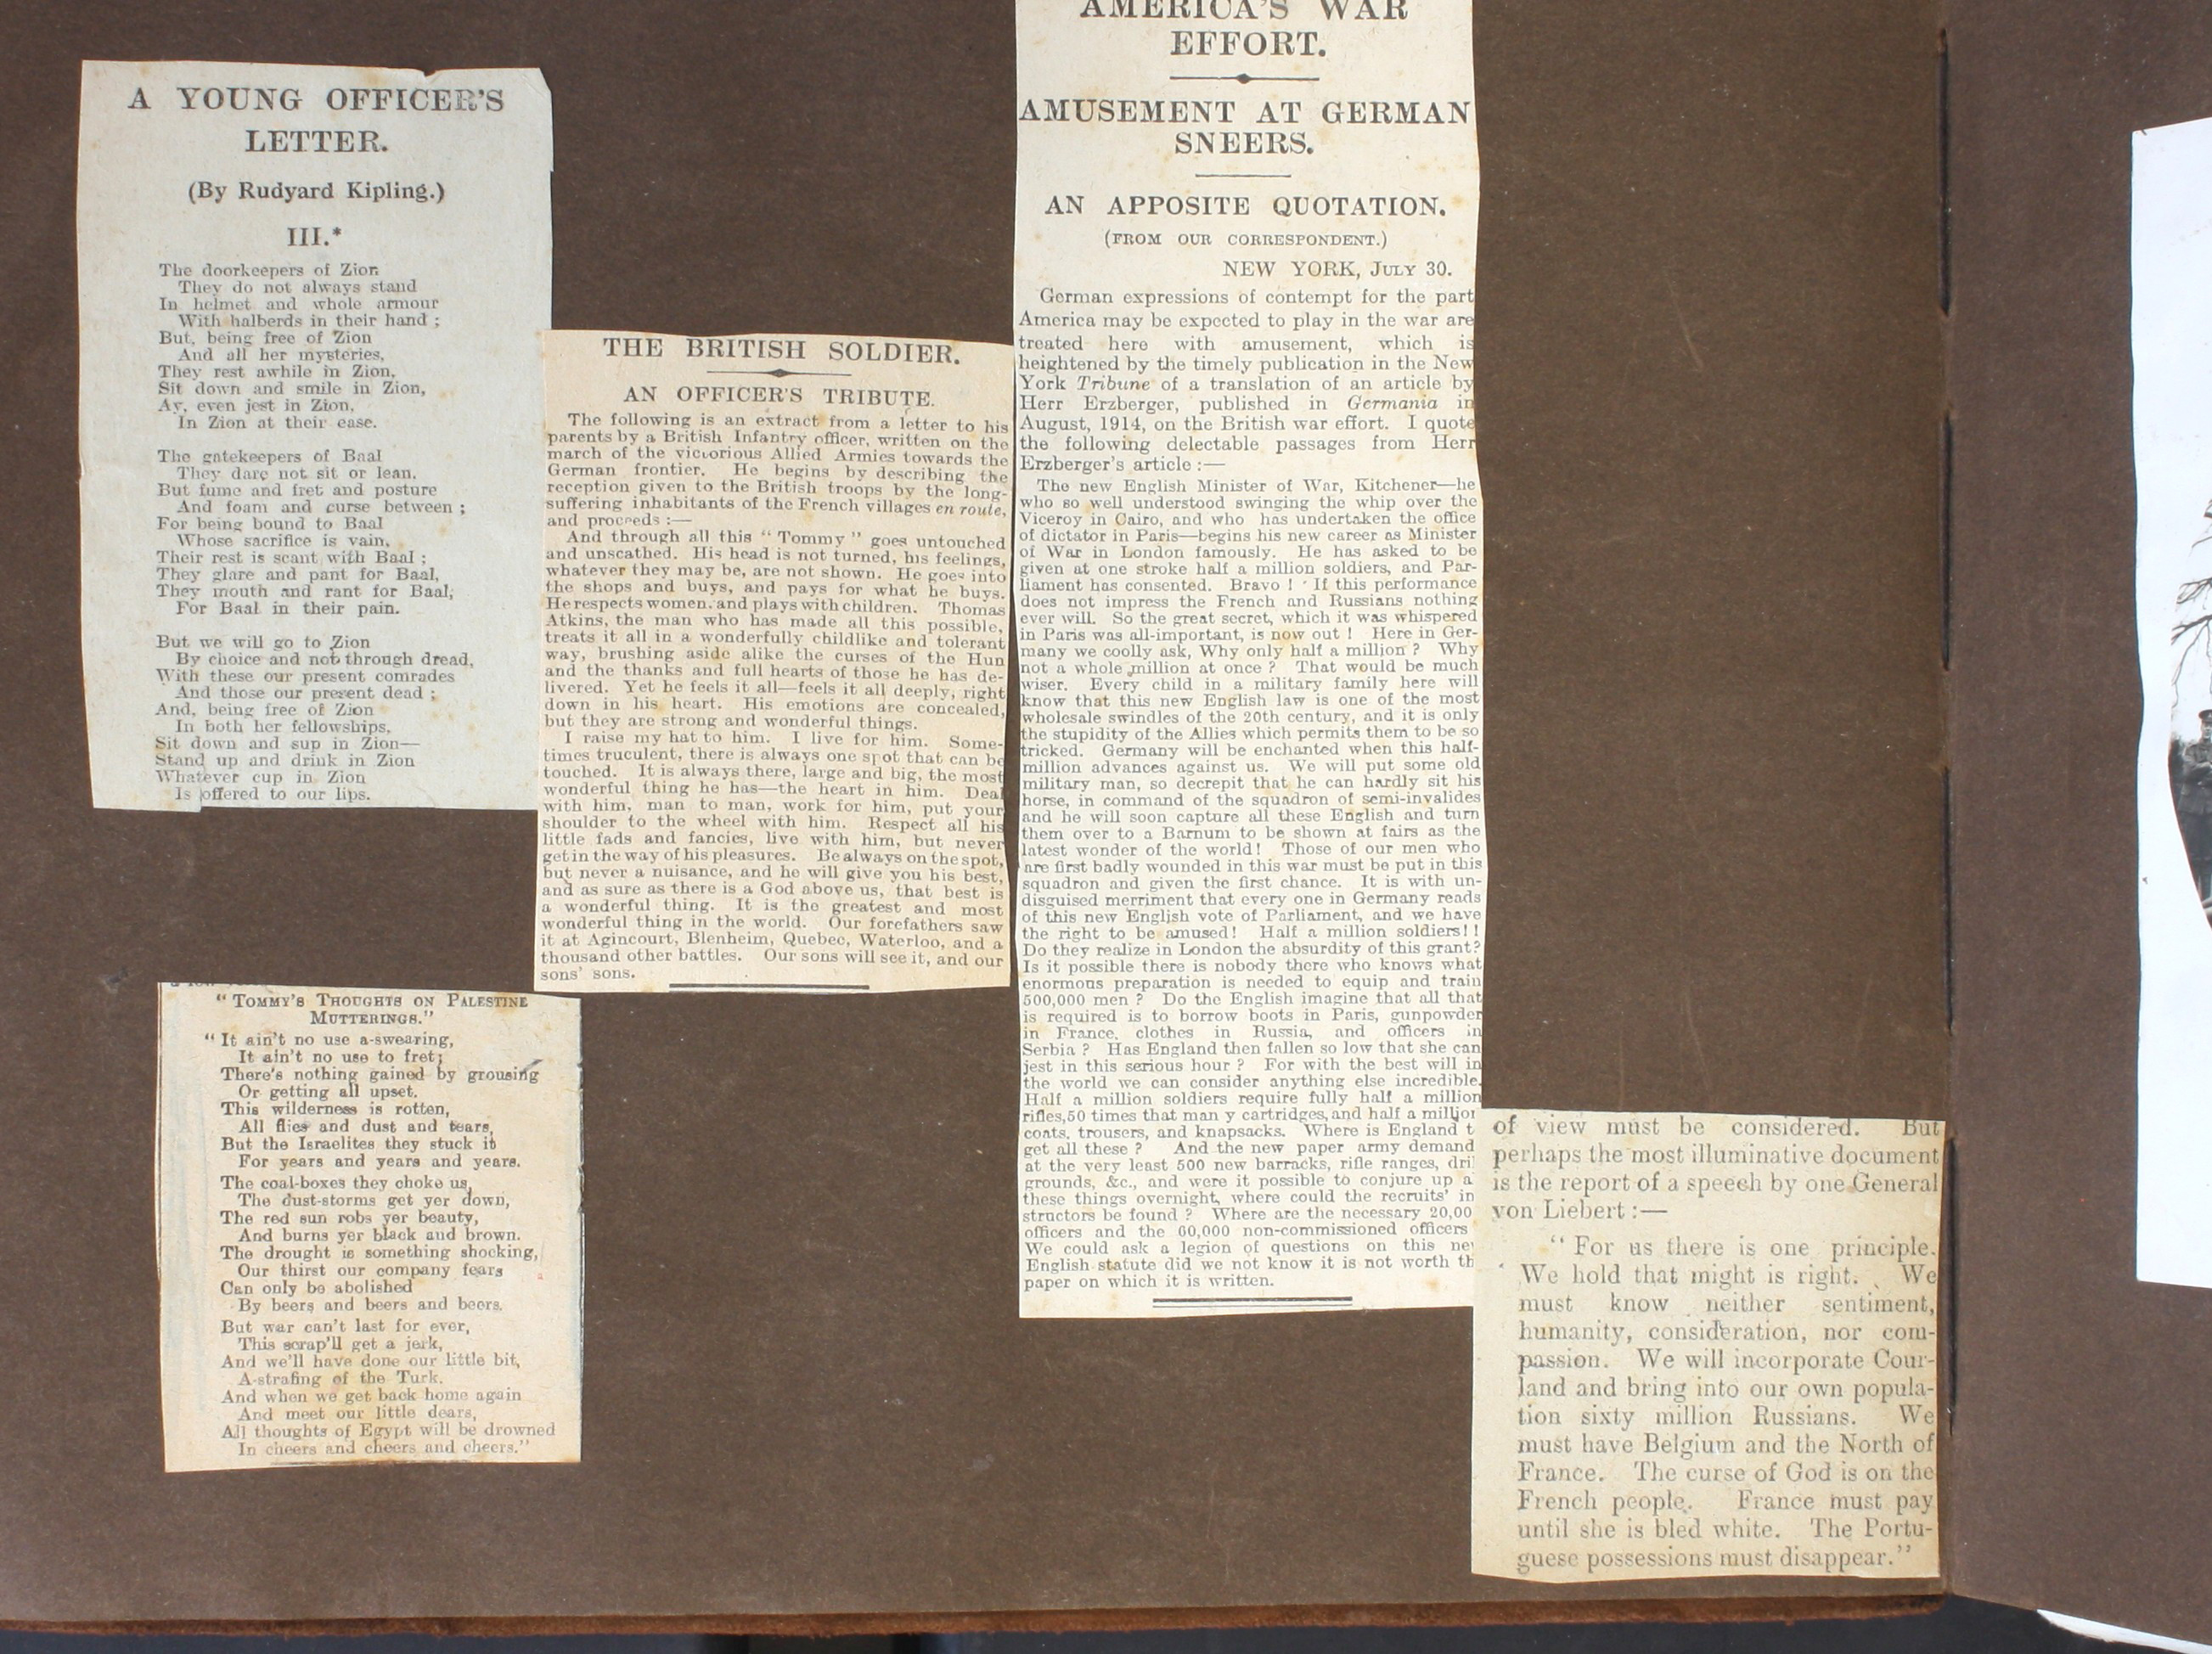 A YOUNG OFFICER'S
LETTER.
(By Rudyard Kipling.)
III.*
The doorkeepers of Zion
They do not always stand
In helmet and whole armour
With halberds in their hand ;
But, being free of Zion
And all her mysteries,
They rest awhile in Zion,
Sit down and smile in Zion,
Ay, even jest in Zion,
In Zion at their ease.
The gatekeepers of Baal
They dare not sit or lean,
But fume and fret and posture
And foam and curse between ;
For being bound to Baal
Whose sacrifice is vain,
Their rest is scant with Baal ;
They glare and pant for Baal,
They mouth and rant for Baal,
For Baal in their pain.
But we will go to Zion
By choice and not through dread,
With these our present comrades
And those our present dead ;
And, being free of Zion
In both her fellowships,
Sit down and sup in Zion—
Stand up and drink in Zion
Whatever cup in Zion
Is offered to our lips.
"TOMMY'S THOUGHTS ON PALESTINE
MUTTERINGS."
"It ain't no use a-swearing,
It ain't no use to fret;
There's nothing gained by grousing
Or getting all upset.
This wilderness is rotten,
All flies and dust and tears,
But the Israelites they stuck it
For years and years and years.
The coal-boxes they choke us,
The dust-storms get yer down,
The red sun robs yer beauty,
And burns yer black and brown.
The drought is something shocking,
Our thirst our company fears
Can only be abolished
By beers and beers and beers.
But war can't last for ever,
This scrap'll get a jerk,
And we'll have done our little bit,
A-strafing of the Turk.
And when we get back home again
And meet our little dears,
All thoughts of Egypt will be drowned
In cheers and cheers and cheers."
THE BRITISH SOLDIER.
AN OFFICER'S TRIBUTE.
The following is an extract from a letter to his
parents by a British Infantry officer, written on the
march of the victorious Allied Armies towards the
German frontier. He begins by describing the
reception given to the British troops by the long-
suffering inhabitants of the French villages en route,
and proceeds :—
And through all this "Tommy" goes untouched
and unscathed. His head is not turned, his feelings,
whatever they may be, are not shown. He goes into
the shops and buys, and pays for what he buys.
He respects women, and plays with children. Thomas
Atkins, the man who has made all this possible,
treats it all in a wonderfully childlike and tolerant
way, brushing aside alike the curses of the Hun
and the thanks and full hearts of those he has de-
livered. Yet he feels it all—feels it all deeply, right
down in his heart. His emotions are concealed,
but they are strong and wonderful things.
I raise my hat to him. I live for him. Some-
times truculent, there is always one spot that can be
touched. It is always there, large and big, the most
wonderful thing he has—the heart in him. Deal
with him, man to man, work for him, put your
shoulder to the wheel with him. Respect all his
little fads and fancies, live with him, but never
get in the way of his pleasures. Be always on the spot,
but never a nuisance, and he will give you his best,
and as sure as there is a God above us, that best is
a wonderful thing. It is the greatest and most
wonderful thing in the world. Our forefathers saw
it at Agincourt, Blenheim, Quebec, Waterloo, and a
thousand other battles. Our sons will see it, and our
sons' sons.
AMERICA'S WAR
EFFORT.
AMUSEMENT AT GERMAN
SNEERS.
AN APPOSITE QUOTATION.
(FROM OUR CORRESPONDENT.)
NEW YORK, JULY 30.
German expressions of contempt for the part
America may be expected to play in the war are
treated here with amusement, which is
heightened by the timely publication in the New
York Tribune of a translation of an article by
Herr Erzberger, published in Germania in
August, 1914, on the British war effort. I quote
the following delectable passages from Herr
Erzberger's article :—
The new English Minister of War, Kitchener—he
who so well understood swinging the whip over the
Viceroy in Cairo, and who has undertaken the office
of dictator in Paris—begins his new career as Minister
of War in London famously. He has asked to be
given at one stroke half a million soldiers, and Par-
liament has consented. Bravo ! If this performance
does not impress the French and Russians nothing
ever will. So the great secret, which it was whispered
in Paris was all-important, is now out ! Here in Ger-
many we coolly ask, Why only half a million ? Why
not a whole million at once ? That would be much
wiser. Every child in a military family here will
know that this new English law is one of the most
wholesale swindles of the 20th century, and it is only
the stupidity of the Allies which permits them to be so
tricked. Germany will be enchanted when this half-
million advances against us. We will put some old
military man, so decrepit that he can hardly sit his
horse, in command of the squadron of semi-invalides
and he will soon capture all these English and turn
them over to a Barnum to be shown at fairs as the
latest wonder of the world! Those of our men who
are first badly wounded in this war must be put in this
squadron and given the first chance. It is with un-
disguised merriment that every one in Germany reads
of this new English vote of Parliament, and we have
the right to be amused! Half a million soldiers!!
Do they realize in London the absurdity of this grant?
Is it possible there is nobody there who knows what
enormous preparation is needed to equip and train
500,000 men ? Do the English imagine that all that
is required is to borrow boots in Paris, gunpowder
in France, clothes in Russia, and officers in
Serbia ? Has England then fallen so low that she can
jest in this serious hour ? For with the best will in
the world we can consider anything else incredible.
Half a million soldiers require fully half a million
rifles, 50 times that man y cartridges, and half a million
coats, trousers, and knapsacks. Where is England t
get all these ? And the new paper army demand
at the very least 500 new barracks, rifle ranges, dril
grounds, &c., and were it possible to conjure up a
these things overnight, where could the recruits' in
structors be found ? Where are the necessary 20,00
officers and the 60,000 non-commissioned officers
We could ask a legion of questions on this new
English statute did we not know it is not worth th
paper on which it is written.
of view must be considered. But
perhaps the most illuminative document
is the report of a speech by one General
von Liebert :—
"For us there is one principle.
We hold that might is right. We
must know neither sentiment,
humanity, consideration, nor com-
passion. We will incorporate Cour-
land and bring into our own popula-
tion sixty million Russians. We
must have Belgium and the North of
France. The curse of God is on the
French people. France must pay
until she is bled white. The Portu-
guese possessions must disappear."